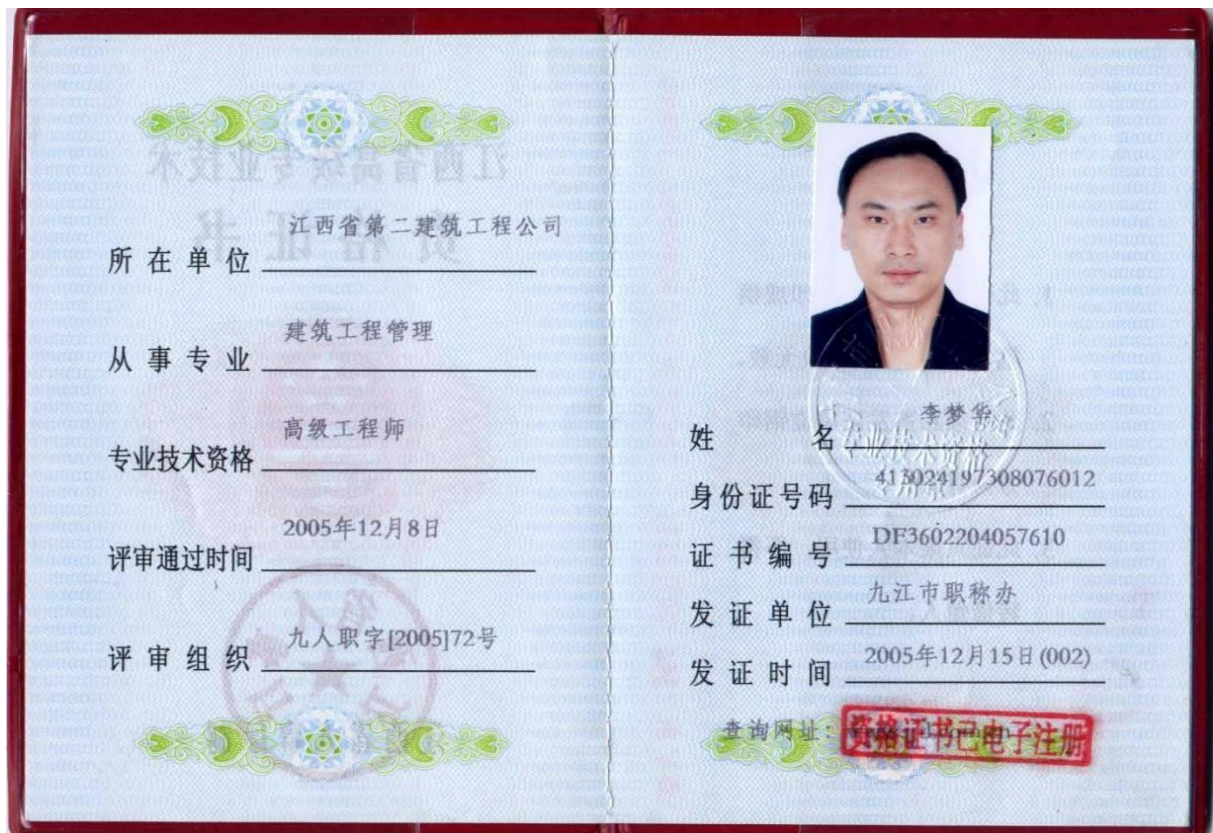 所在单位 江西省第二建筑工程公司
从事专业 建筑工程管理
专业技术资格 高级工程师
评审通过时间 2005年12月8日
评审组织 九人职字[2005]72号
姓名 李梦华
专业技术资格
身份证号码 413024197308076012
证书编号 DF3602204057610
发证单位 九江市职称办
发证时间 2005年12月15日(002)
查询网址:
资格证书已电子注册